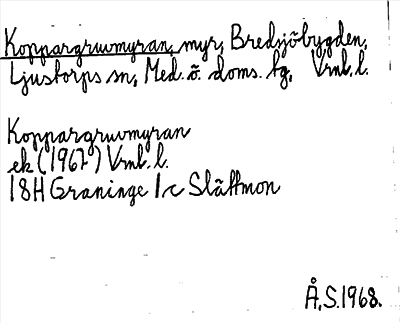 Koppargruvmyran, myr, Bredsjöbygden,
Ljustorps sn, Med. ö. doms. tg, Vrnl. l.
Koppargruvmyran
ek (1967) Vrnl. l.
18H Graninge 1c Slättmon
Å.S.1968.